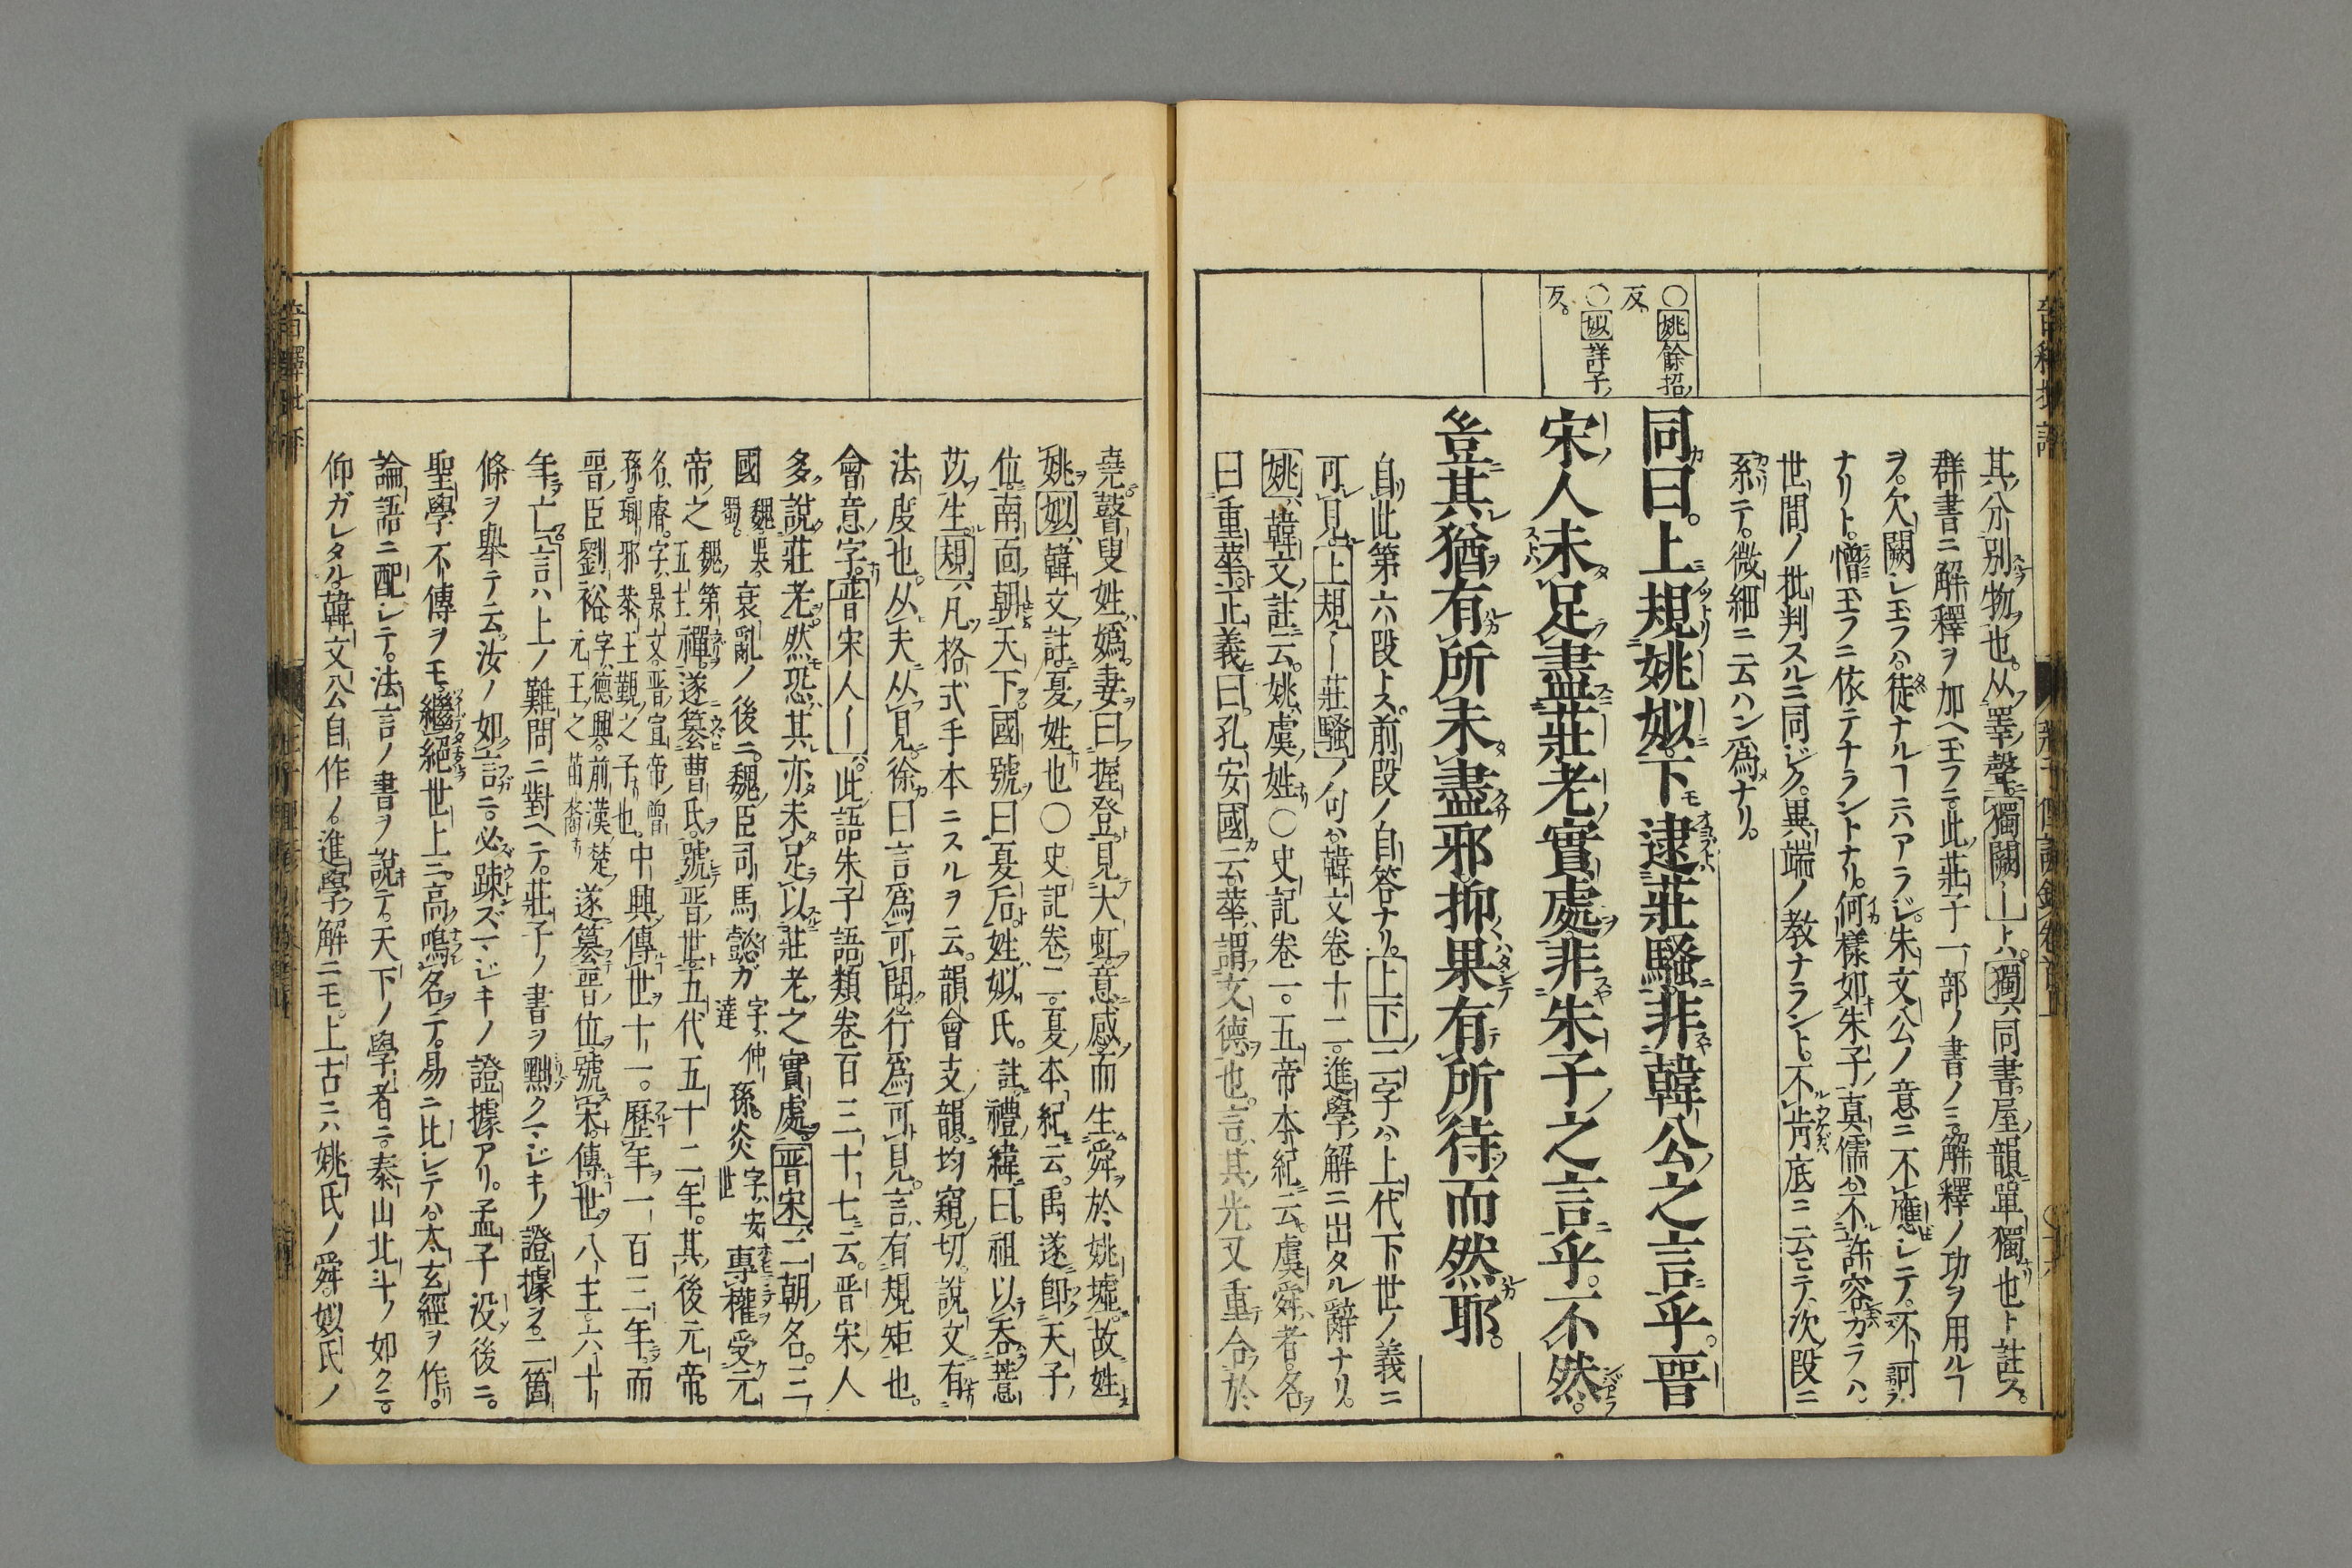 ○姚餘招ノ
反。
○姒詳子ノ
反。
其ノ分別物也。从睪聲。獨闕ーートハ。獨ハ同書。屋韻單獨也ト註ス。
群書ニ解釋ヲ加ヘ玉フニ。此莊子一部ノ書ノミ。解釋ノ功ヲ用ルヿ
ヲ。欠闕シ玉フハ。徒ナルヿニハアラジ。朱文公ノ意ニ不應シテ。不訶ラ
ナリト。憎玉フニ依テナラントナリ。何樣如朱子ノ真儒ハ。不許容カラハ。
世間ノ批判スルニ同ジク。異端ノ教ナラント。不肯底ニ云モテ。次段ニ
系ニテ。微細ニ云ハン爲ナリ。
同曰。上規姚姒。下逮莊騷。非韓公之言乎。晉
宋人未足盡莊老實處。非朱子之言乎。不然。
豈其猶有所未盡邪。抑果有所待而然耶。
自此第六段トス。前段ノ自答ナリ。上下ノ二字ハ。上代下世ノ義ニ
可見。上規ー莊騷ノ句ハ。韓文卷十二。進學解ニ出タル辭ナリ。
姚ハ韓文ノ註云。姚虞姓。○史記卷一。五帝本紀云。虞舜者。名
曰重華。正義曰。孔安國云。華謂文德也。言其光又重合於
堯。瞽叟姓嬀。妻曰握登。見大虹意感而生舜於姚墟。故姓
姚。姒ハ韓文註。夏姓也○史記卷二。夏本紀云。禹遂即天子
位。南面朝天下。國號曰夏后。姓姒氏。註禮緯曰。祖以吞薏
苡生。規ハ凡格式手本ニスルヲ云。韻會支韻。均窺切。說文有
法度也。从夫从見。徐曰言爲可聞。行爲可見。言有規矩也。
會意字。晉宋人ーハ。此語朱子語類卷百三十七云。晉宋人
多說莊老。然恐其亦未足以莊老之實處。晉宋ハ二朝ノ名。三
國魏吳蜀。衰亂ノ後ニ。魏臣司馬懿ガ字ハ仲達孫。炎字ハ安世專權受元
帝之魏第五主禪。遂簒曹氏。號晉。世五代五十二年。其後元帝。
名ハ睿。字ハ景文。晉宣帝曾孫。瑯邪恭王覲之子也。中興傳世十一。歷年一百二年。而
晉臣劉裕。字德輿。前漢楚元王之苗裔遂簒晉位。號宋。傳世八主。六十
年亡。言ハ上ノ難問ニ對ヘテ。莊子ノ書ヲ黜クマジキノ證據ヲ。二箇
條ヲ舉テ云。汝ノ如言ニ。必踈ズマジキノ證據アリ。孟子沒後ニ。
聖學不傳ヲモ。繼絕世上ニ。高鳴名テ。易ニ比シテハ。太玄經ヲ作。
論語ニ配シテ。法言ノ書ヲ說テ。天下ノ學者ニ。泰山北斗ノ如クニ。
仰ガレタル韓文公自作ノ。進學解ニモ。上古ニハ姚氏ノ舜。姒氏ノ